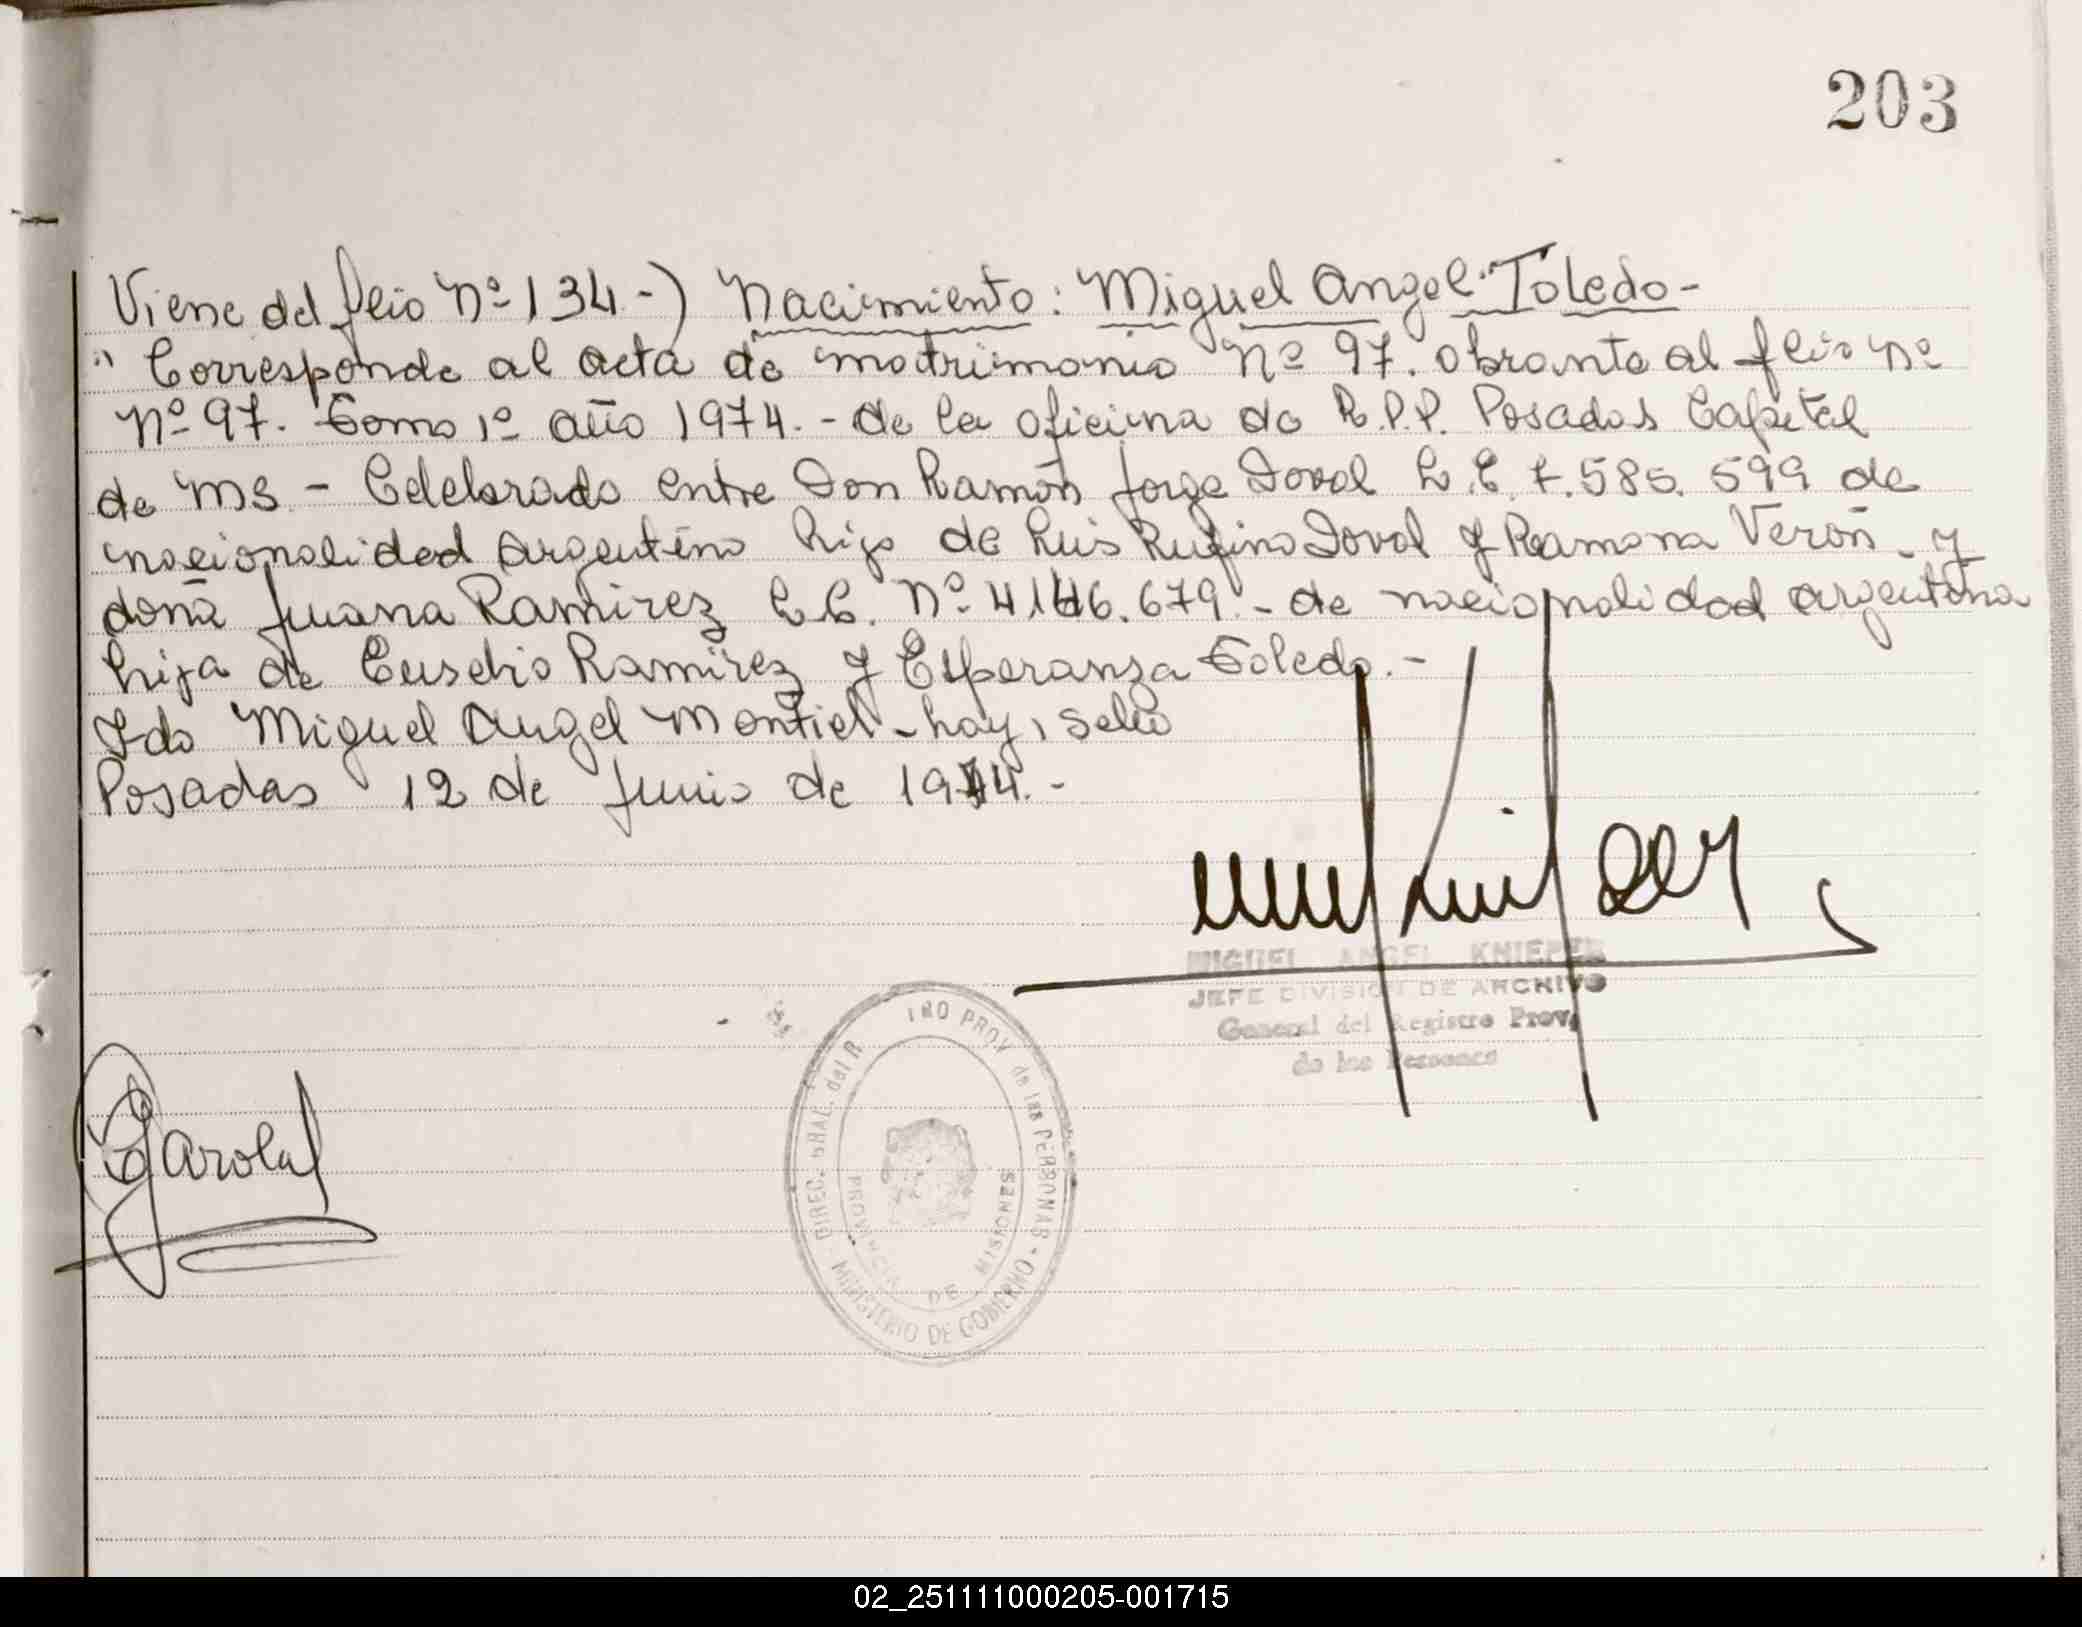 203
Viene del flio Nº 134.-) Nacimiento: Miguel Angel Toledo-
" Corresponde al acta de matrimonio Nº 97. obrante al flio nº
Nº 97. Tomo 1º año 1974.- de la oficina de R.P.P. Posadas Capital
de MS - Celebrado entre Don Ramón Jorge Doval L.E. 7.585.599 de
nacionalidad argentino hijo de Luis Rufino Doval y Ramona Verón - y
doña Juana Ramirez L.C. Nº 4.146.679.- de nacionalidad argentina
hija de Eusebio Ramírez y Esperanza Toledo.-
Fdo Miguel Angel Montiel - hay 1 sello
Posadas 12 de Junio de 1974.-
MIGUEL ANGEL KNIEPER
JEFE DIVISION DE ARCHIVO
General del Registro Prov.
de las Personas
DIREC. GRAL. del R PROV de las PERSONAS
MINISTERIO DE GOBIERNO
PROVINCIA DE MISIONES
02_251111000205-001715